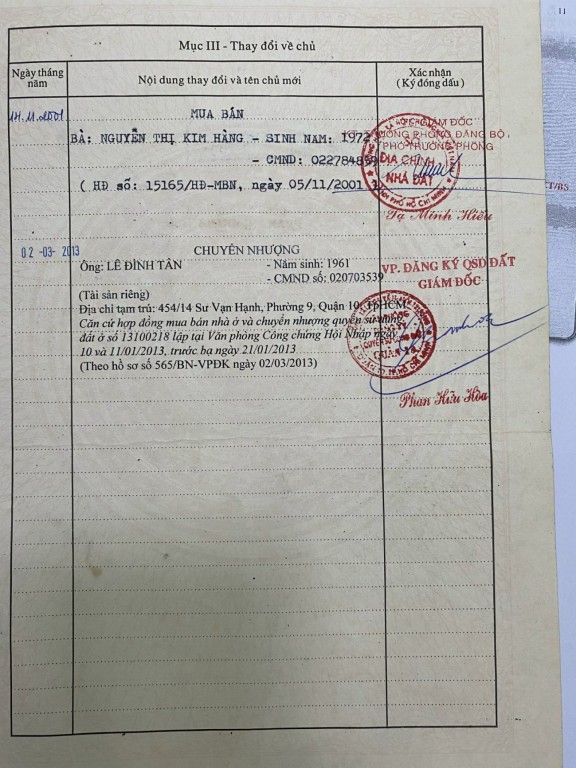 11
Mục III - Thay đổi về chủ
Ngày tháng năm
Nội dung thay đổi và tên chủ mới
Xác nhận
(Ký đóng dấu)
14.11.2001
MUA BÁN
BÀ: NGUYỄN THỊ KIM HẰNG - SINH NĂM: 1972
- CMND: 022784859
( HĐ số: 15165/HĐ-MBN, ngày 05/11/2001 )
GIÁM ĐỐC
PHÒNG ĐĂNG BỘ,
PHÓ TRƯỞNG PHÒNG
ĐỊA CHÍNH
NHÀ ĐẤT
Tạ Minh Hiếu
02 -03- 2013
CHUYỂN NHƯỢNG
Ông: LÊ ĐÌNH TÂN - Năm sinh: 1961
- CMND số: 020703539
(Tài sản riêng)
Địa chỉ tạm trú: 454/14 Sư Vạn Hạnh, Phường 9, Quận 10, TpHCM
Căn cứ hợp đồng mua bán nhà ở và chuyển nhượng quyền sử dụng
đất ở số 13100218 lập tại Văn phòng Công chứng Hội Nhập ngày
10 và 11/01/2013, trước bạ ngày 21/01/2013
(Theo hồ sơ số 565/BN-VPĐK ngày 02/03/2013)
VP. ĐĂNG KÝ QSD ĐẤT
GIÁM ĐỐC
Phan Hữu Hòa